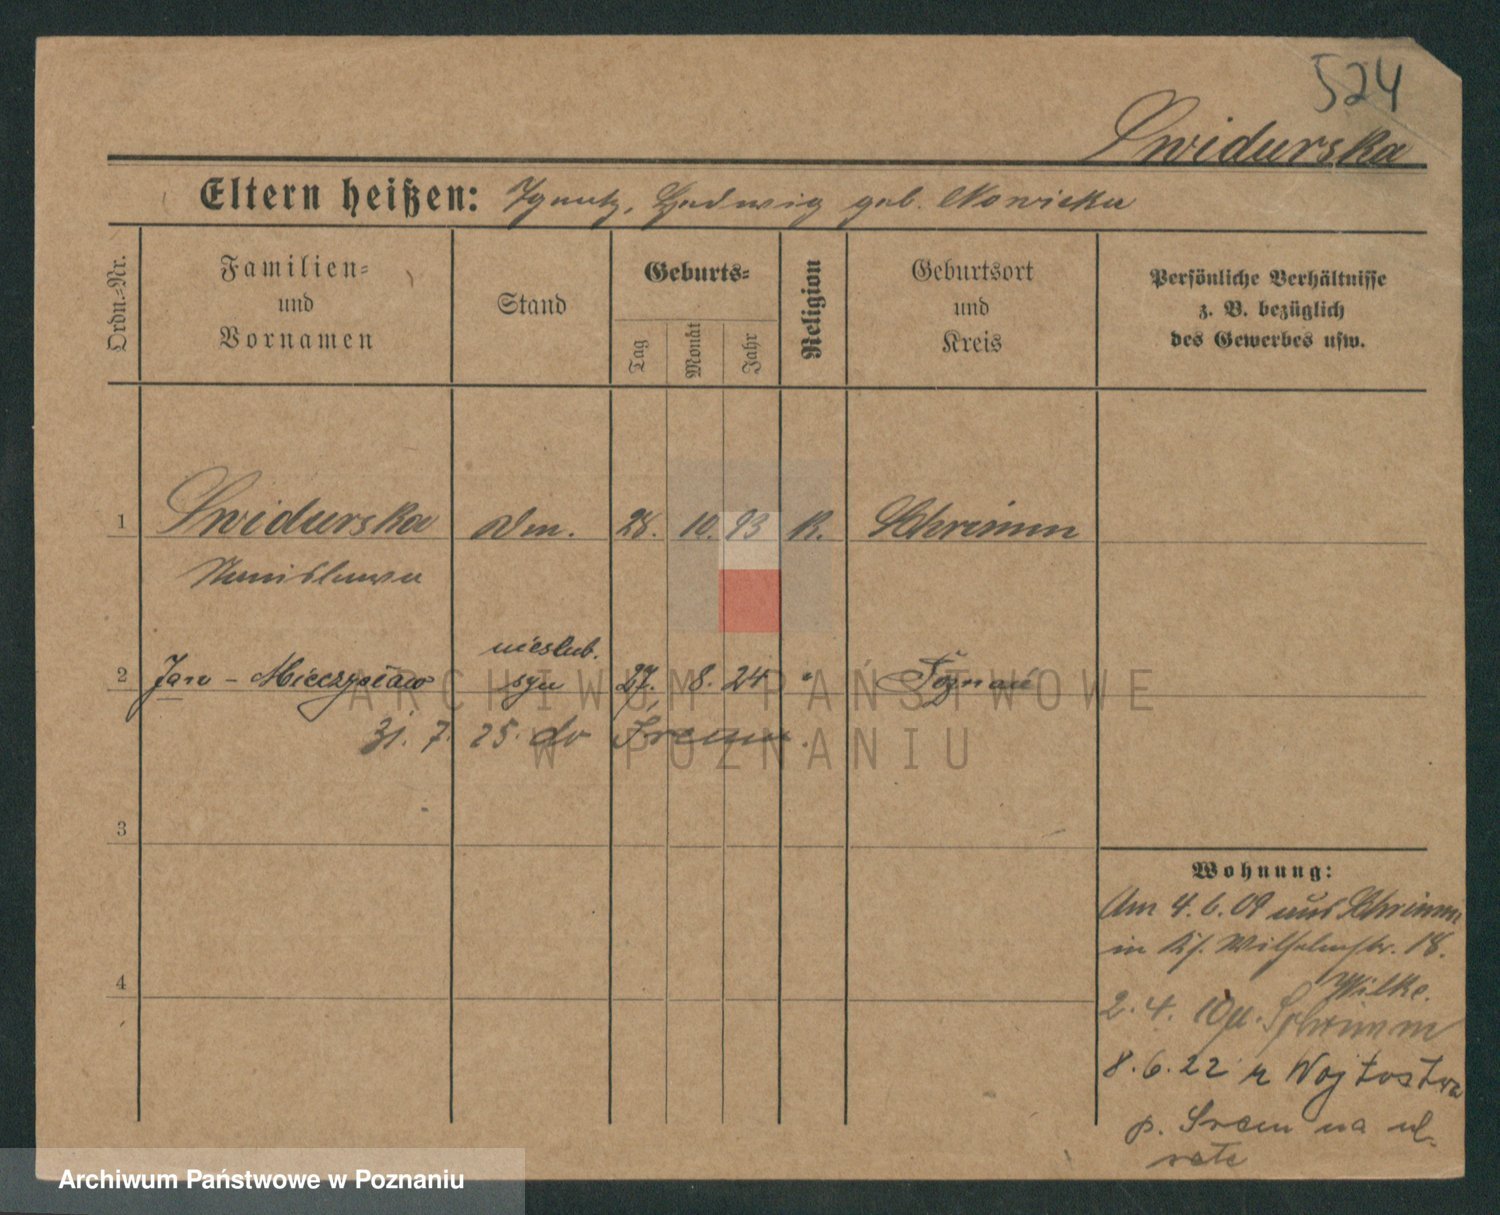 524
Swidurska
Eltern heißen: Ignatz, Hedwig geb. Nowicka
Ordn.-Nr.
Familien- und Vornamen
Stand
Geburts-
Tag
Monat
Jahr
Religion
Geburtsort und Kreis
Persönliche Verhältnisse
z. B. bezüglich
des Gewerbes usw.
1 Swidurska 28. 10. 93 K. Schrimm
Stanislawa
nieślub.
2 Jan - Mieczysław syn 27. 8. 24 " Poznań
31. 7. 25. do Śremu.
3
Wohnung:
Am 4. 6. 09 aus Schrimm
in Wilhelmstr. 18.
Wilke.
4
2. 4. 10 Schrimm
8. 6. 22 z Wojtostwa
p. Srem na ul.
ARCHIWUM PAŃSTWOWE
W POZNANIU
Archiwum Państwowe w Poznaniu